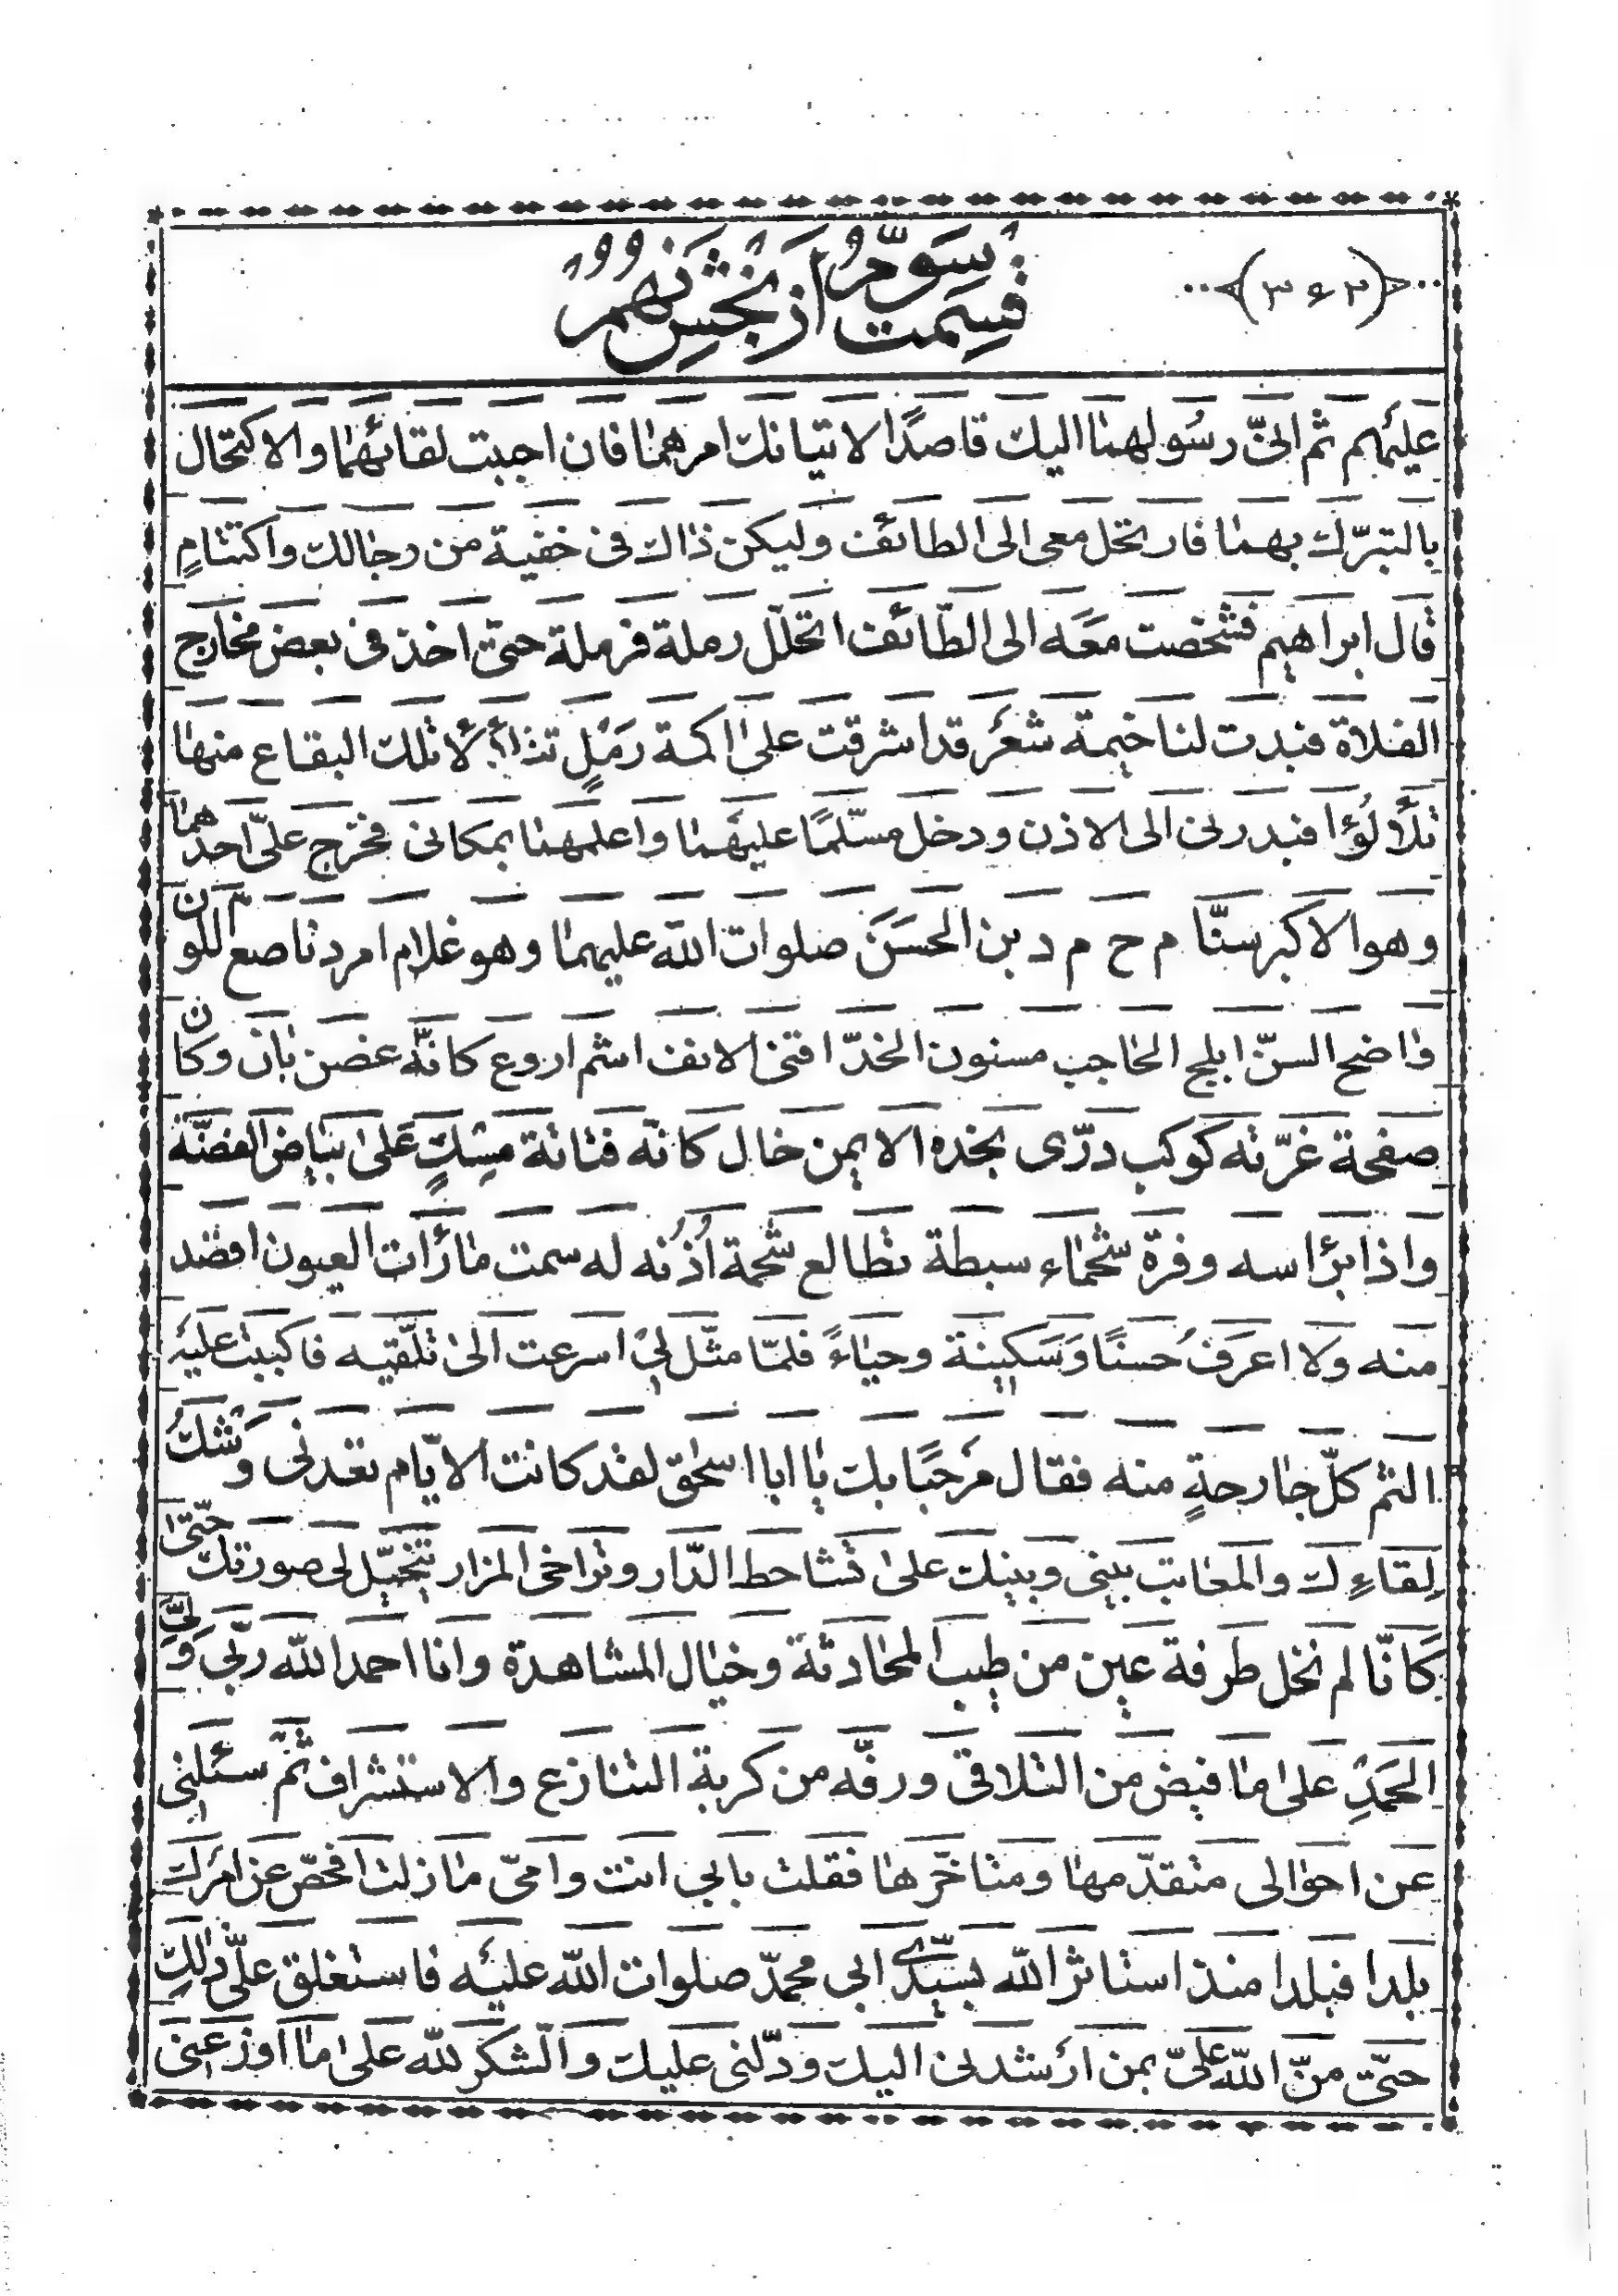 ﴿۳۶۳﴾
قسمت سوّم از بخش نهم
علیهم ثم الیّ رسولهما الیک قاصدًا لاتیانک امرهما فان احببت لقائهما والاکتحال
بالتبرّک بهما فارتحل معی الی الطائف ولیکن ذالک فی خفیة من رجالک واکتتامٍ
قال ابراهیم فشخصت معه الی الطّائف اتخلّل رملة فرملة حتّی اخذ فی بعض مخارج
الفلاة فبدت لنا خیمة شعر قد اشرقت علی اکمة رمْلٍ تتلألأ تلک البقاع منها
تلألؤا فبدرنی الی الاذن ودخل مسلّمًا علیهما واعلمهما بمکانی فخرج علیّ احدهما
وهو الاکبر سنّا م ح م د بن الحسن صلوات الله علیهما وهو غلام امرد ناصع اللون
واضح السنّ ابلج الحاجب مسنون الخدّ اقنی الانف اشم اروع کانّه غصن بان وکان
صفحة غرّته کوکب درّی بخده الایمن خال کانّه فتاتة مسکٍ علی بیاض الفضّة
واذا برأسه وفرة شحماء سبطة تطالع شحمة اُذُنه له سمت ما رأت العیون اقصد
منه ولا اعرف حسنًا وسکینة وحیاءً فلمّا مثّل لی اسرعت الی تلقّیه فاکببت علیه
الثم کلّ جارحةٍ منه فقال مرحبًا بک یا ابا اسحٰق لقد کانت الایّام تعدنی وشک
لقاءِک والمعاتب بینی وبینک علی تشاحط الدّار وتراخی المزار تتخیّل لی صورتک حتّی
کانّا لم نخل طرفة عین من طیب المحادثة وخیال المشاهدة وانا احمد الله ربّی ولیّ
الحمدِ علی ما قیض من التلاقی ورفّه من کربة التنازع والاستشراف ثمّ سئلنی
عن احوالی متقدّمها ومتاخّرها فقلت بابی انت وامّی ما زلت افحّص عن امرک
بلدا فبلدا منذ استاثر الله بسیّدی ابی محمّد صلوات الله علیه فاستغلق علیّ ذلک
حتّی منّ الله علیّ بمن ارشدنی الیک ودلّنی علیک والشکر لله علی ما اوزعنی